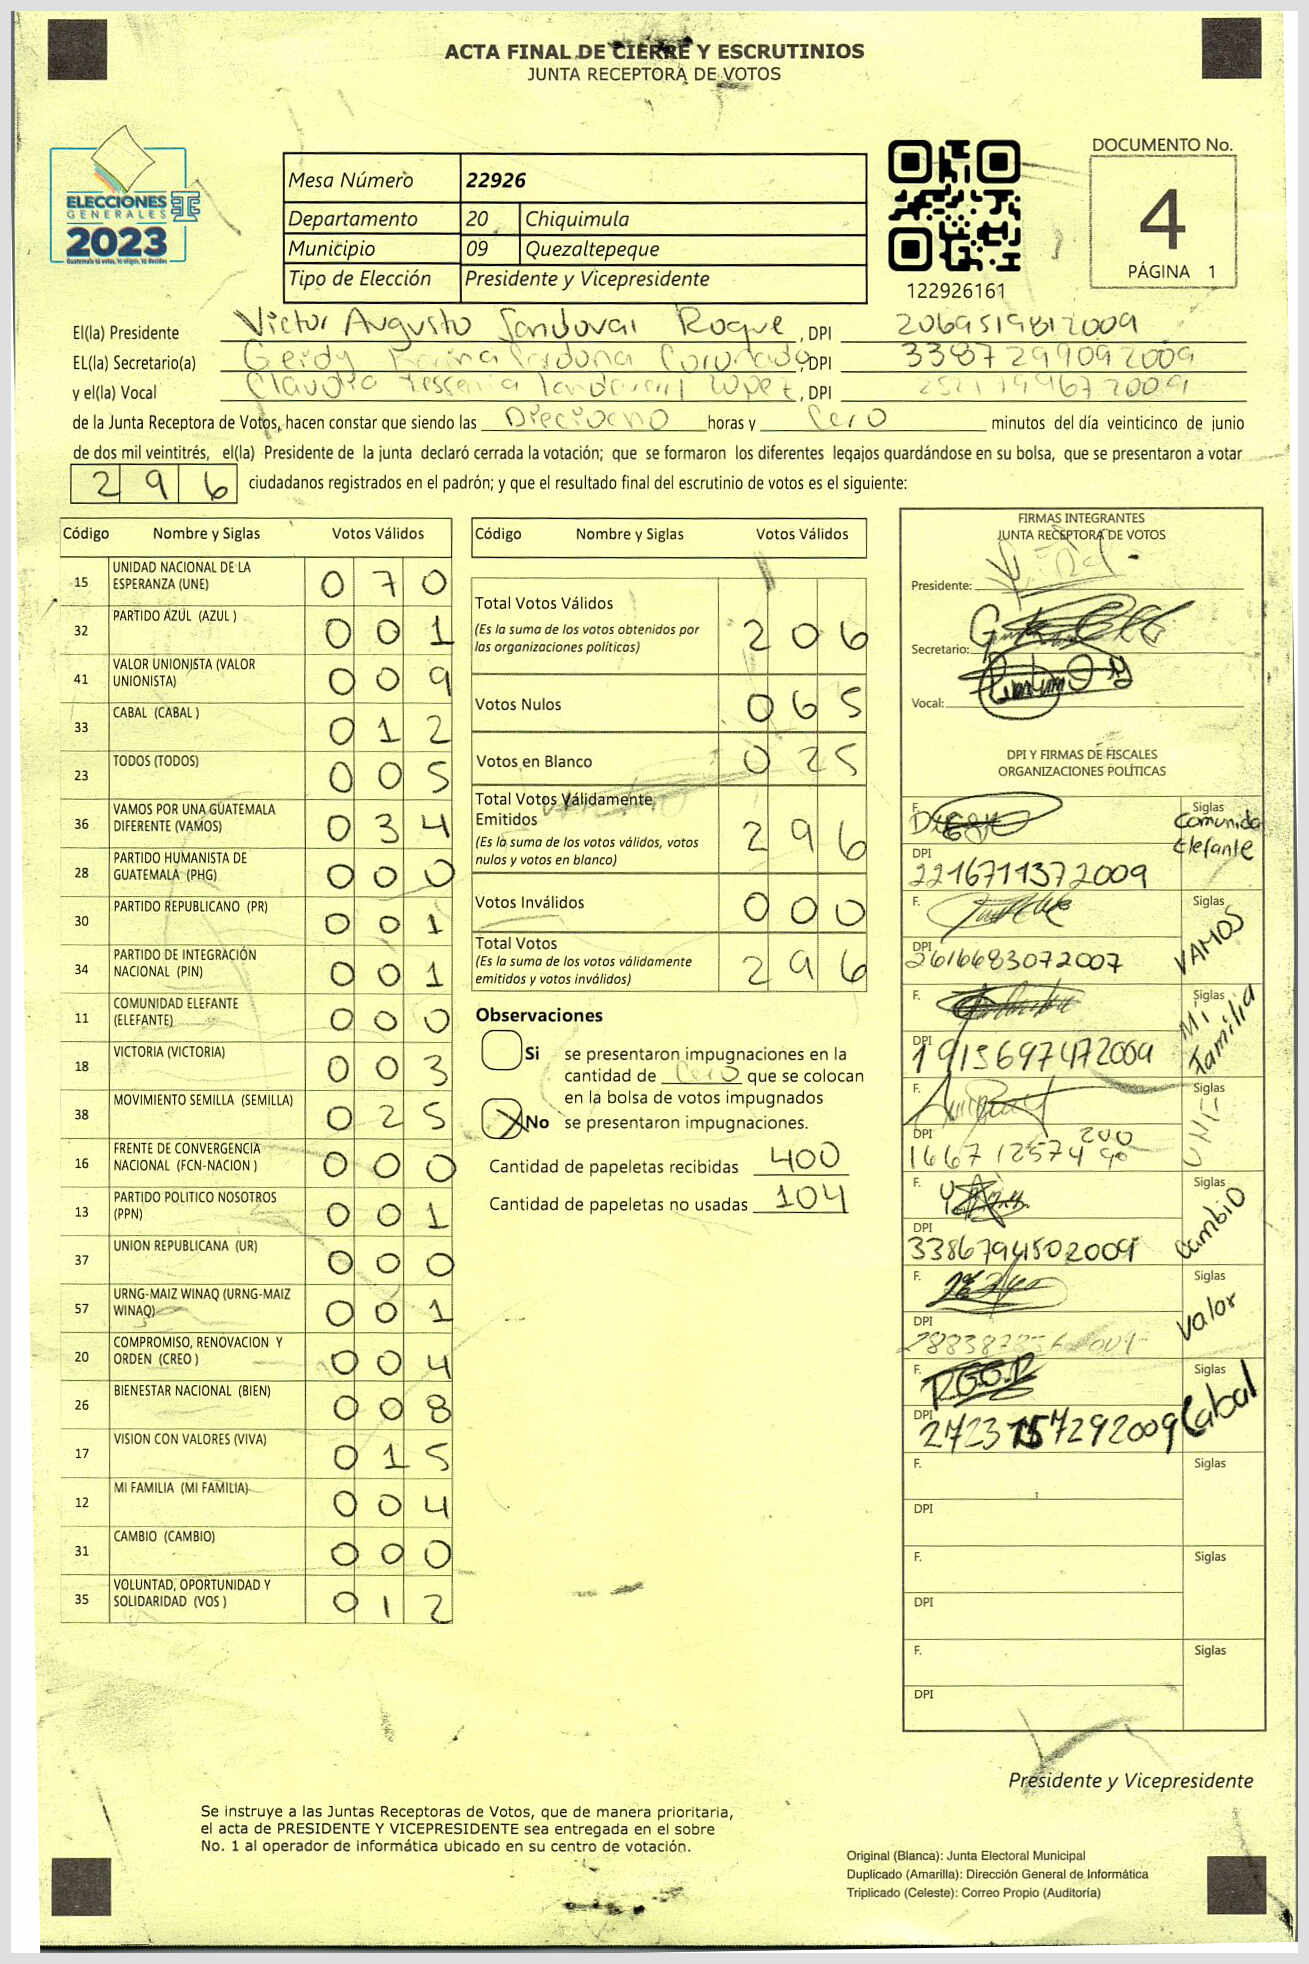 ACTA FINAL DE CIERRE Y ESCRUTINIOS
JUNTA RECEPTORA DE VOTOS
ELECCIONES
GENERALES
2023
Guatemala tú votas, tú eliges, tú decides
Mesa Número 22926
Departamento 20 Chiquimula
Municipio 09 Quezaltepeque
Tipo de Elección Presidente y Vicepresidente
122926161
DOCUMENTO No.
4
PÁGINA 1
El(la) Presidente Victor Augusto Sandoval Roque, DPI 2069519812009
EL(la) Secretario(a) Coronado, DPI 3387299092009
y el(la) Vocal Claudia Lopez, DPI
de la Junta Receptora de Votos, hacen constar que siendo las Dieciocho horas y Cero minutos del día veinticinco de junio
de dos mil veintitrés, el(la) Presidente de la junta declaró cerrada la votación; que se formaron los diferentes legajos guardándose en su bolsa, que se presentaron a votar
296 ciudadanos registrados en el padrón; y que el resultado final del escrutinio de votos es el siguiente:
Código Nombre y Siglas Votos Válidos
15 UNIDAD NACIONAL DE LA ESPERANZA (UNE) 070
32 PARTIDO AZUL (AZUL ) 001
41 VALOR UNIONISTA (VALOR UNIONISTA) 009
33 CABAL (CABAL ) 012
23 TODOS (TODOS) 005
36 VAMOS POR UNA GUATEMALA DIFERENTE (VAMOS) 034
28 PARTIDO HUMANISTA DE GUATEMALA (PHG) 000
30 PARTIDO REPUBLICANO (PR) 001
34 PARTIDO DE INTEGRACIÓN NACIONAL (PIN) 001
11 COMUNIDAD ELEFANTE (ELEFANTE) 000
18 VICTORIA (VICTORIA) 003
38 MOVIMIENTO SEMILLA (SEMILLA) 025
16 FRENTE DE CONVERGENCIA NACIONAL (FCN-NACION ) 000
13 PARTIDO POLITICO NOSOTROS (PPN) 001
37 UNION REPUBLICANA (UR) 000
57 URNG-MAIZ WINAQ (URNG-MAIZ WINAQ) 001
20 COMPROMISO, RENOVACION Y ORDEN (CREO ) 004
26 BIENESTAR NACIONAL (BIEN) 008
17 VISION CON VALORES (VIVA) 015
12 MI FAMILIA (MI FAMILIA) 004
31 CAMBIO (CAMBIO) 000
35 VOLUNTAD, OPORTUNIDAD Y SOLIDARIDAD (VOS ) 012
Código Nombre y Siglas Votos Válidos
Total Votos Válidos 206
(Es la suma de los votos obtenidos por
las organizaciones políticas)
Votos Nulos 065
Votos en Blanco 025
Total Votos Válidamente Emitidos 296
(Es la suma de los votos válidos, votos
nulos y votos en blanco)
Votos Inválidos 000
Total Votos 296
(Es la suma de los votos válidamente
emitidos y votos inválidos)
Observaciones
Si se presentaron impugnaciones en la
cantidad de Cero que se colocan
en la bolsa de votos impugnados
X No se presentaron impugnaciones.
Cantidad de papeletas recibidas 400
Cantidad de papeletas no usadas 104
FIRMAS INTEGRANTES
JUNTA RECEPTORA DE VOTOS
Presidente:
Secretario:
Vocal:
DPI Y FIRMAS DE FISCALES
ORGANIZACIONES POLÍTICAS
F. Siglas
Comunida
Elefante
DPI
2216711372009
F. Siglas
VAMOS
DPI
2616683072007
F. Siglas
Mi
Familia
DPI
1915697472009
F. Siglas
DPI
F. Siglas
Cambio
DPI
3386794502009
F. Siglas
Valor
DPI
F. Siglas
Cabal
DPI
2723157292009
F. Siglas
DPI
F. Siglas
DPI
F. Siglas
DPI
Presidente y Vicepresidente
Se instruye a las Juntas Receptoras de Votos, que de manera prioritaria,
el acta de PRESIDENTE Y VICEPRESIDENTE sea entregada en el sobre
No. 1 al operador de informática ubicado en su centro de votación.
Original (Blanca): Junta Electoral Municipal
Duplicado (Amarilla): Dirección General de Informática
Triplicado (Celeste): Correo Propio (Auditoría)